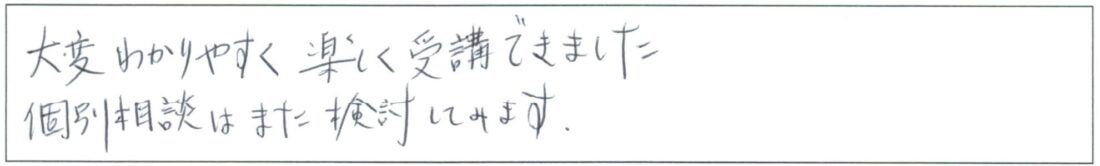 大変わかりやすく楽しく受講できました
個別相談はまた検討してみます.